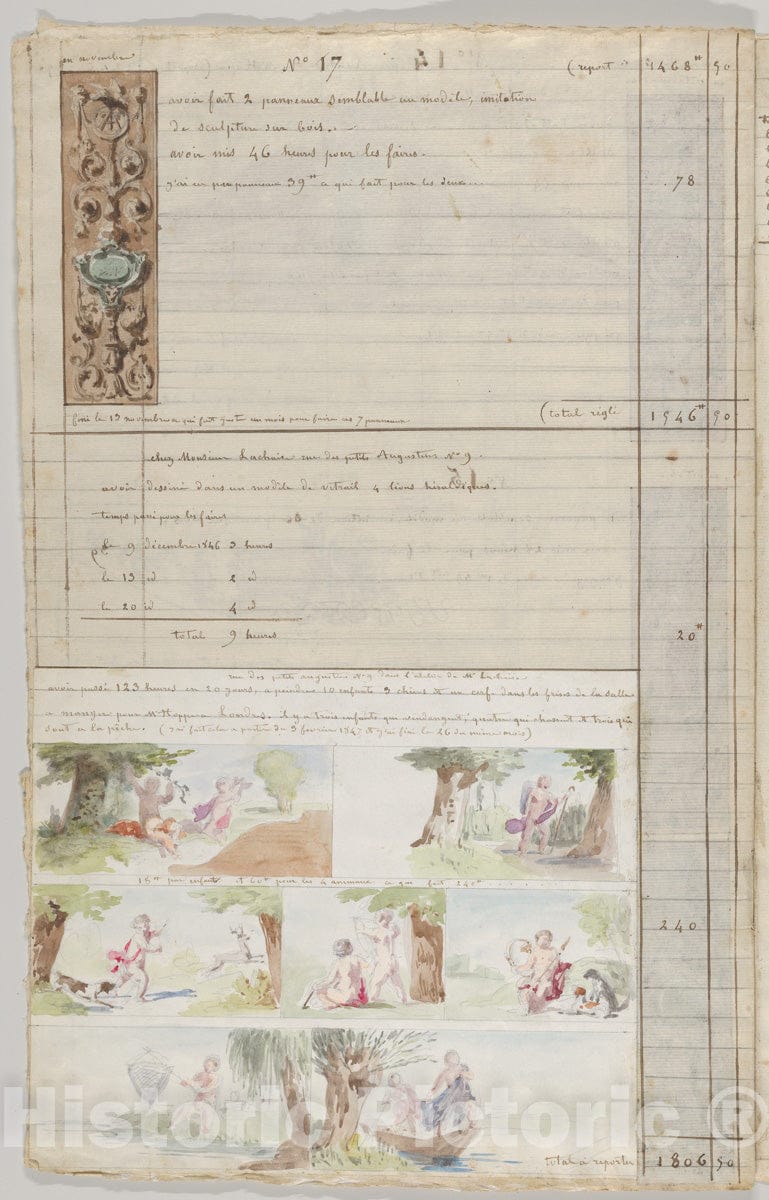 en novembre
No 17 (report 1468# 50
avoir fait 2 panneaux semblable au modele, imitation
de sculpture sur bois.
avoir mis 46 heures pour les faires.
j'ai eu par panneaux 39# ce qui fait pour les deux... 78
fini le 13 novembre ce qui fait juste un mois pour faire ces 7 panneaux
(total réglé 1546# 50
chez Monsieur Lachaise rue des petits Augustins No 9.
avoir dessiné dans un modele de vitrail 4 lions hiraldiques.
temps passé pour les faires
le 9 décembre 1846 3 heures
le 13 id 2 id
le 20 id 4 id
total 9 heures 20#
rue des petits augustins No 9 dans l'atelier de Mr Lachaise
avoir passé 123 heures en 20 jours, a peindres 10 enfants 3 chiens et un cerf dans les frises de la salle
a manger pour Mr Hoppe a Londres. il y a trois enfants qui vendangent, quatre qui chassent et trois qui
sont a la pêche. (j'ai fait cela a partir du 3 fevrier 1847 et j'ai fini le 26 du meme mois)
18# par enfants et 60# pour les 4 animaux ce que fait 240#
240
total a reporter 1806 50
Historic Pictoric ®